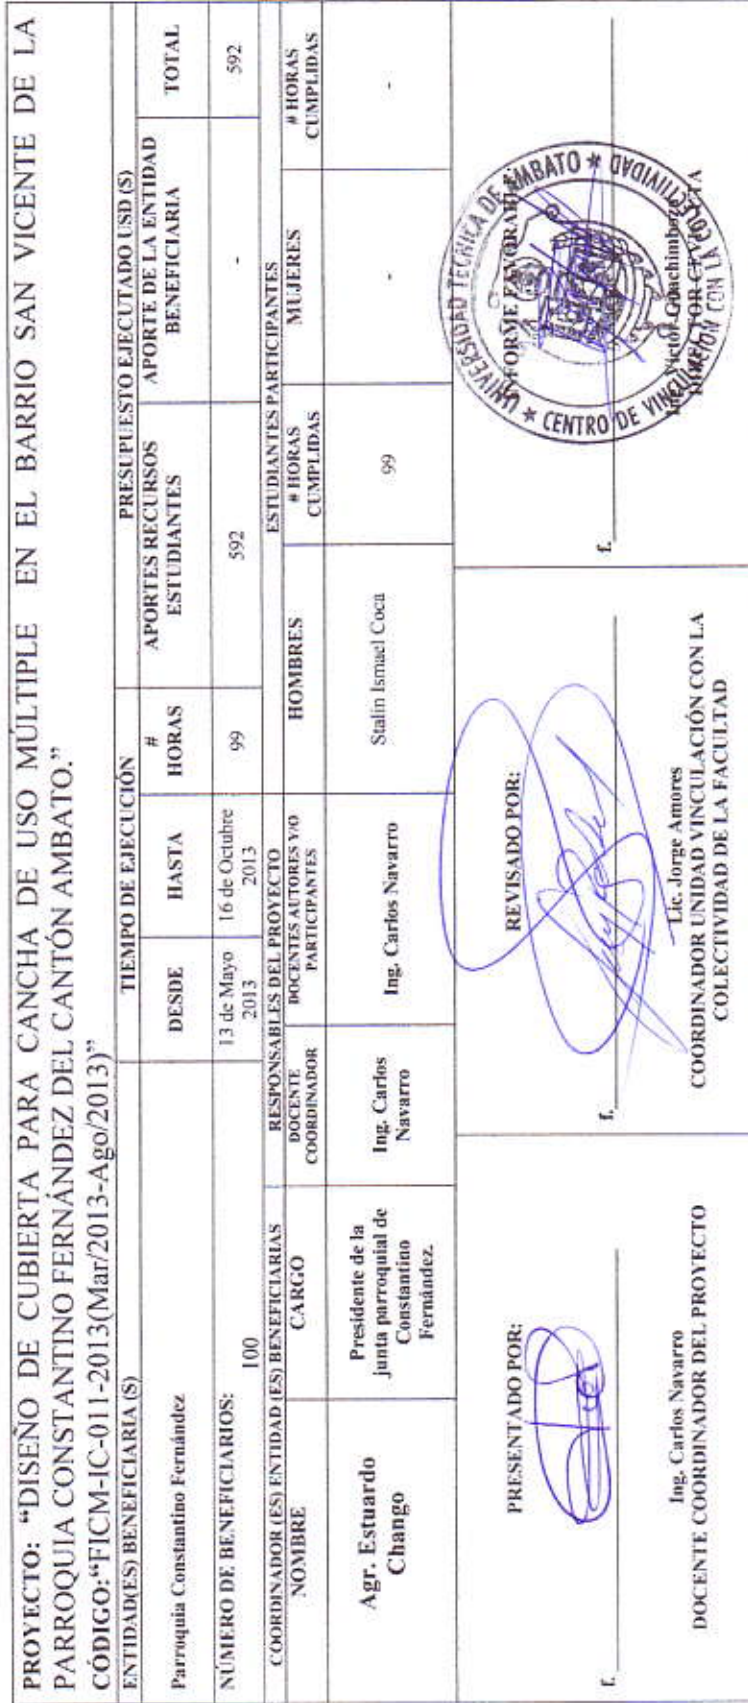 PROYECTO: “DISEÑO DE CUBIERTA PARA CANCHA DE USO MÚLTIPLE EN EL BARRIO SAN VICENTE DE LA
PARROQUIA CONSTANTINO FERNÁNDEZ DEL CANTÓN AMBATO.”
CÓDIGO:“FICM-IC-011-2013(Mar/2013-Ago/2013)”
ENTIDAD(ES) BENEFICIARIA (S)
TIEMPO DE EJECUCIÓN
PRESUPUESTO EJECUTADO USD (S)
Parroquia Constantino Fernández
DESDE
HASTA
#
HORAS
APORTES RECURSOS
ESTUDIANTES
APORTE DE LA ENTIDAD
BENEFICIARIA
TOTAL
NÚMERO DE BENEFICIARIOS:
100
13 de Mayo
2013
16 de Octubre
2013
99
592
-
592
COORDINADOR (ES) ENTIDAD (ES) BENEFICIARIAS
RESPONSABLES DEL PROYECTO
ESTUDIANTES PARTICIPANTES
NOMBRE
CARGO
DOCENTE
COORDINADOR
DOCENTES AUTORES Y/O
PARTICIPANTES
HOMBRES
# HORAS
CUMPLIDAS
MUJERES
# HORAS
CUMPLIDAS
Agr. Estuardo
Chango
Presidente de la
junta parroquial de
Constantino
Fernández.
Ing. Carlos
Navarro
Ing. Carlos Navarro
Stalin Ismael Coca
99
-
-
PRESENTADO POR:
f.
Ing. Carlos Navarro
DOCENTE COORDINADOR DEL PROYECTO
REVISADO POR:
f.
Lic. Jorge Amores
COORDINADOR UNIDAD VINCULACIÓN CON LA
COLECTIVIDAD DE LA FACULTAD
INFORME FAVORABLE:
f.
Víctor Guachimboza
UNIVERSIDAD TECNICA DE AMBATO * CENTRO DE VINCULACION CON LA COLECTIVIDAD *